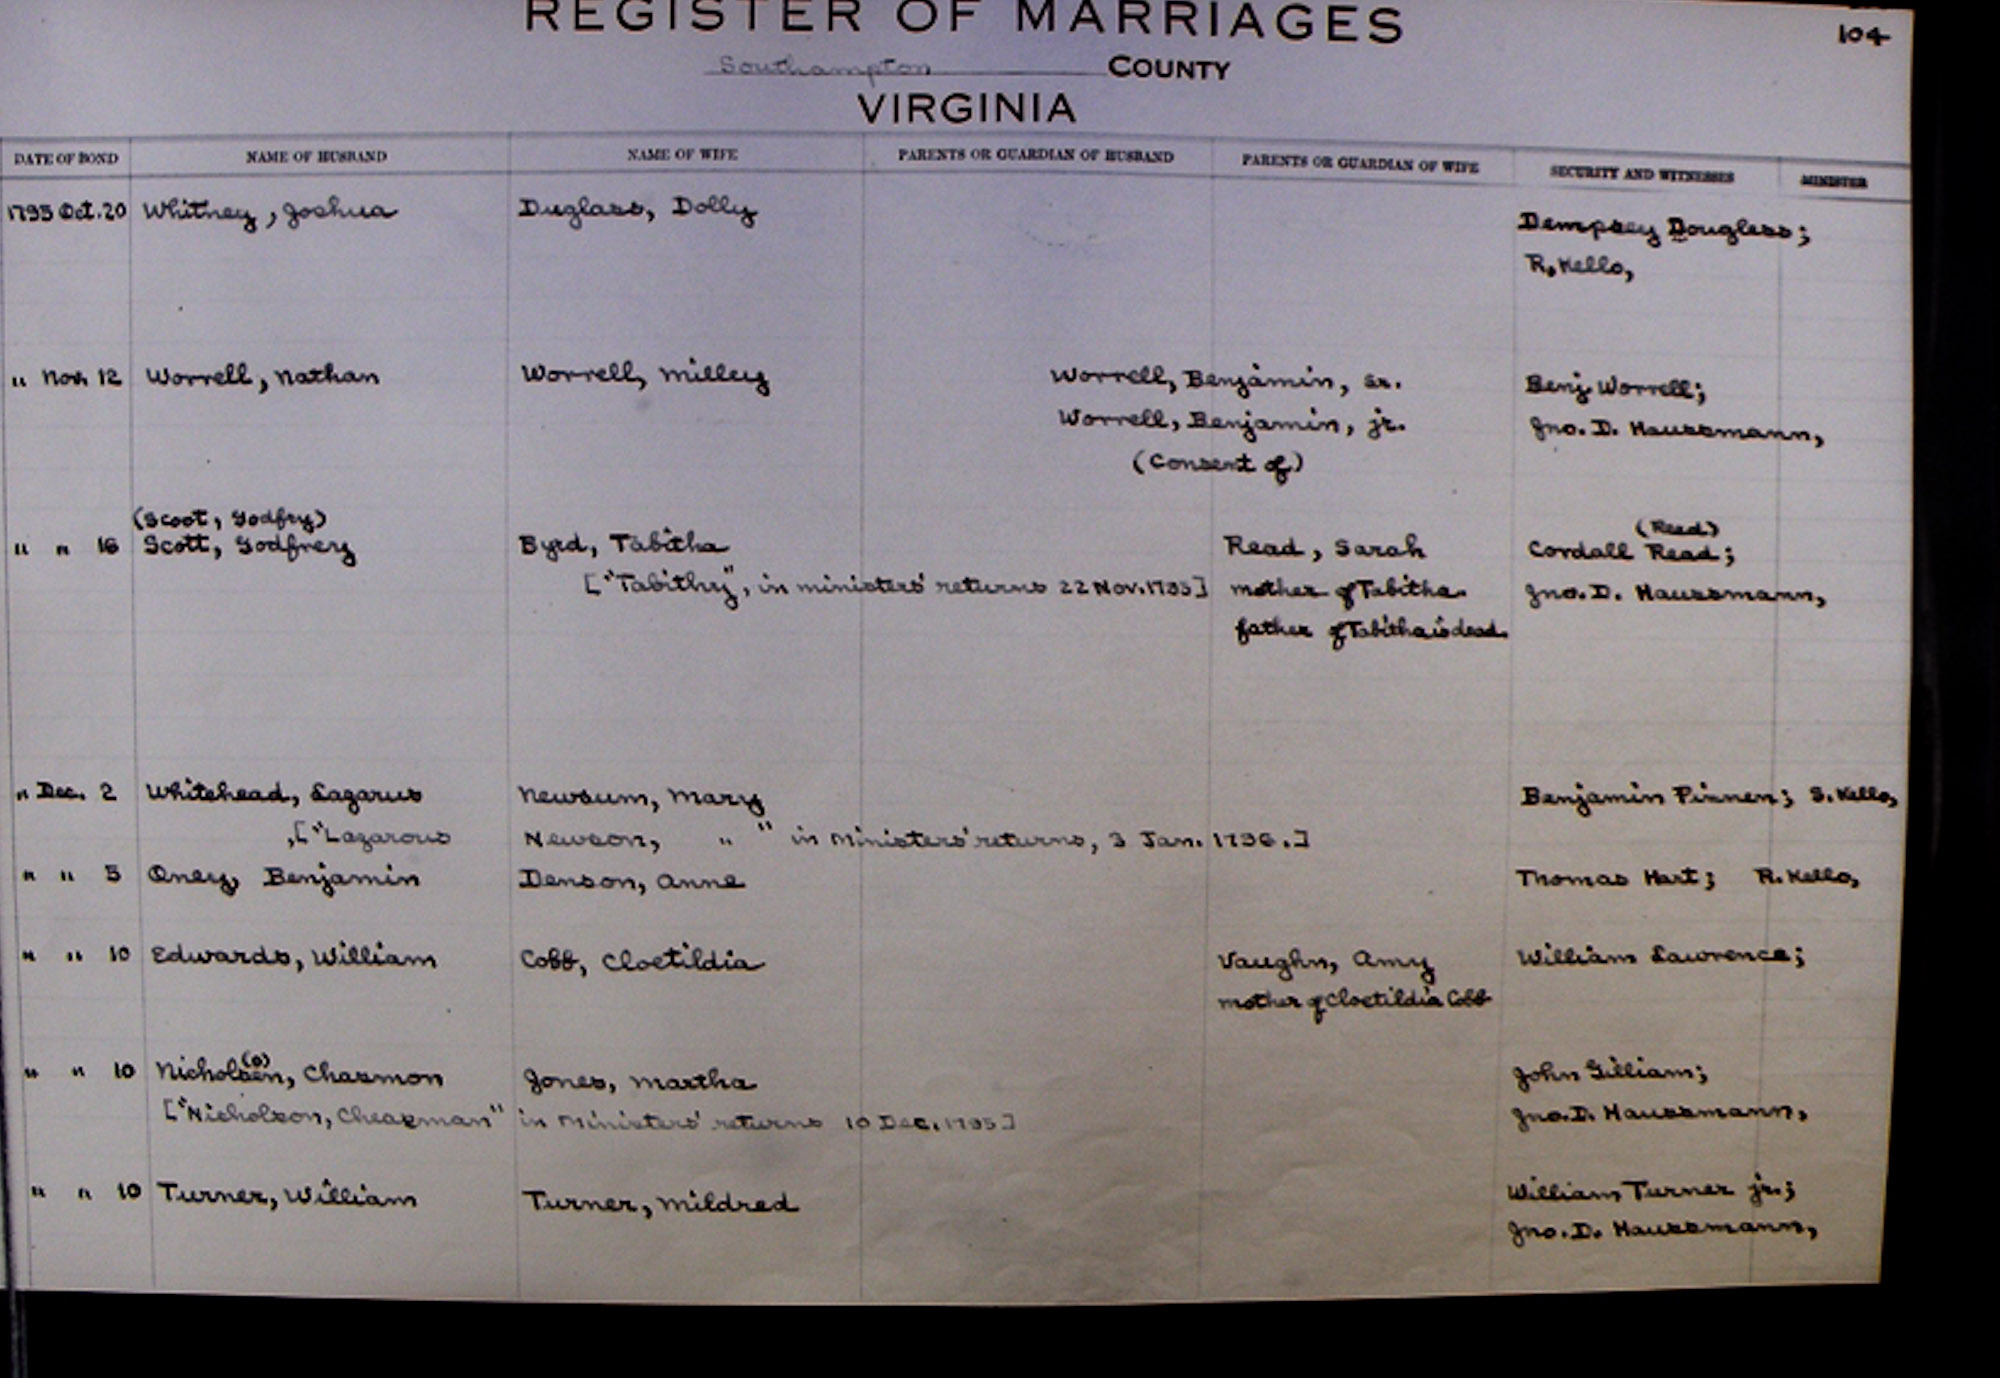 REGISTER OF MARRIAGES
104
Southampton COUNTY
VIRGINIA
DATE OF BOND NAME OF HUSBAND NAME OF WIFE PARENTS OR GUARDIAN OF HUSBAND PARENTS OR GUARDIAN OF WIFE SECURITY AND WITNESSES MINISTER
1795 Oct. 20 Whitney, Joshua Duglass, Dolly Dempsey Douglass;
R. Kello,
" Nov. 12 Worrell, Nathan Worrell, Milley Worrell, Benjamin, sr. Benj Worrell;
Worrell, Benjamin, jr. Jno. D. Haussmann,
(Consent of)
(Scoot, Godfry) (Read)
" " 16 Scott, Godfrey Byrd, Tabitha Read, Sarah Cordall Read;
["Tabithy", in ministers' returns 22 Nov. 1795] mother of Tabitha. Jno. D. Haussmann,
father of Tabitha is dead.
" Dec. 2 Whitehead, Lazarus Newsum, Mary Benjamin Pinnen; S. Kello,
,["Lazarous Newson, " " in Ministers' returns, 3 Jan. 1796.]
" " 5 Oney, Benjamin Denson, Anne Thomas Hart; R. Kello,
" " 10 Edwards, William Cobb, Cloetildia Vaughn, Amy William Lawrence;
mother of Cloetildia Cobb
(o)
" " 10 Nicholsen, Chasmon Jones, Martha John Gilliam;
["Nicholson, Cheasman" in Ministers' returns 10 Dec. 1795] Jno. D. Haussmann,
" " 10 Turner, William Turner, Mildred William Turner jr.;
Jno. D. Haussmann,